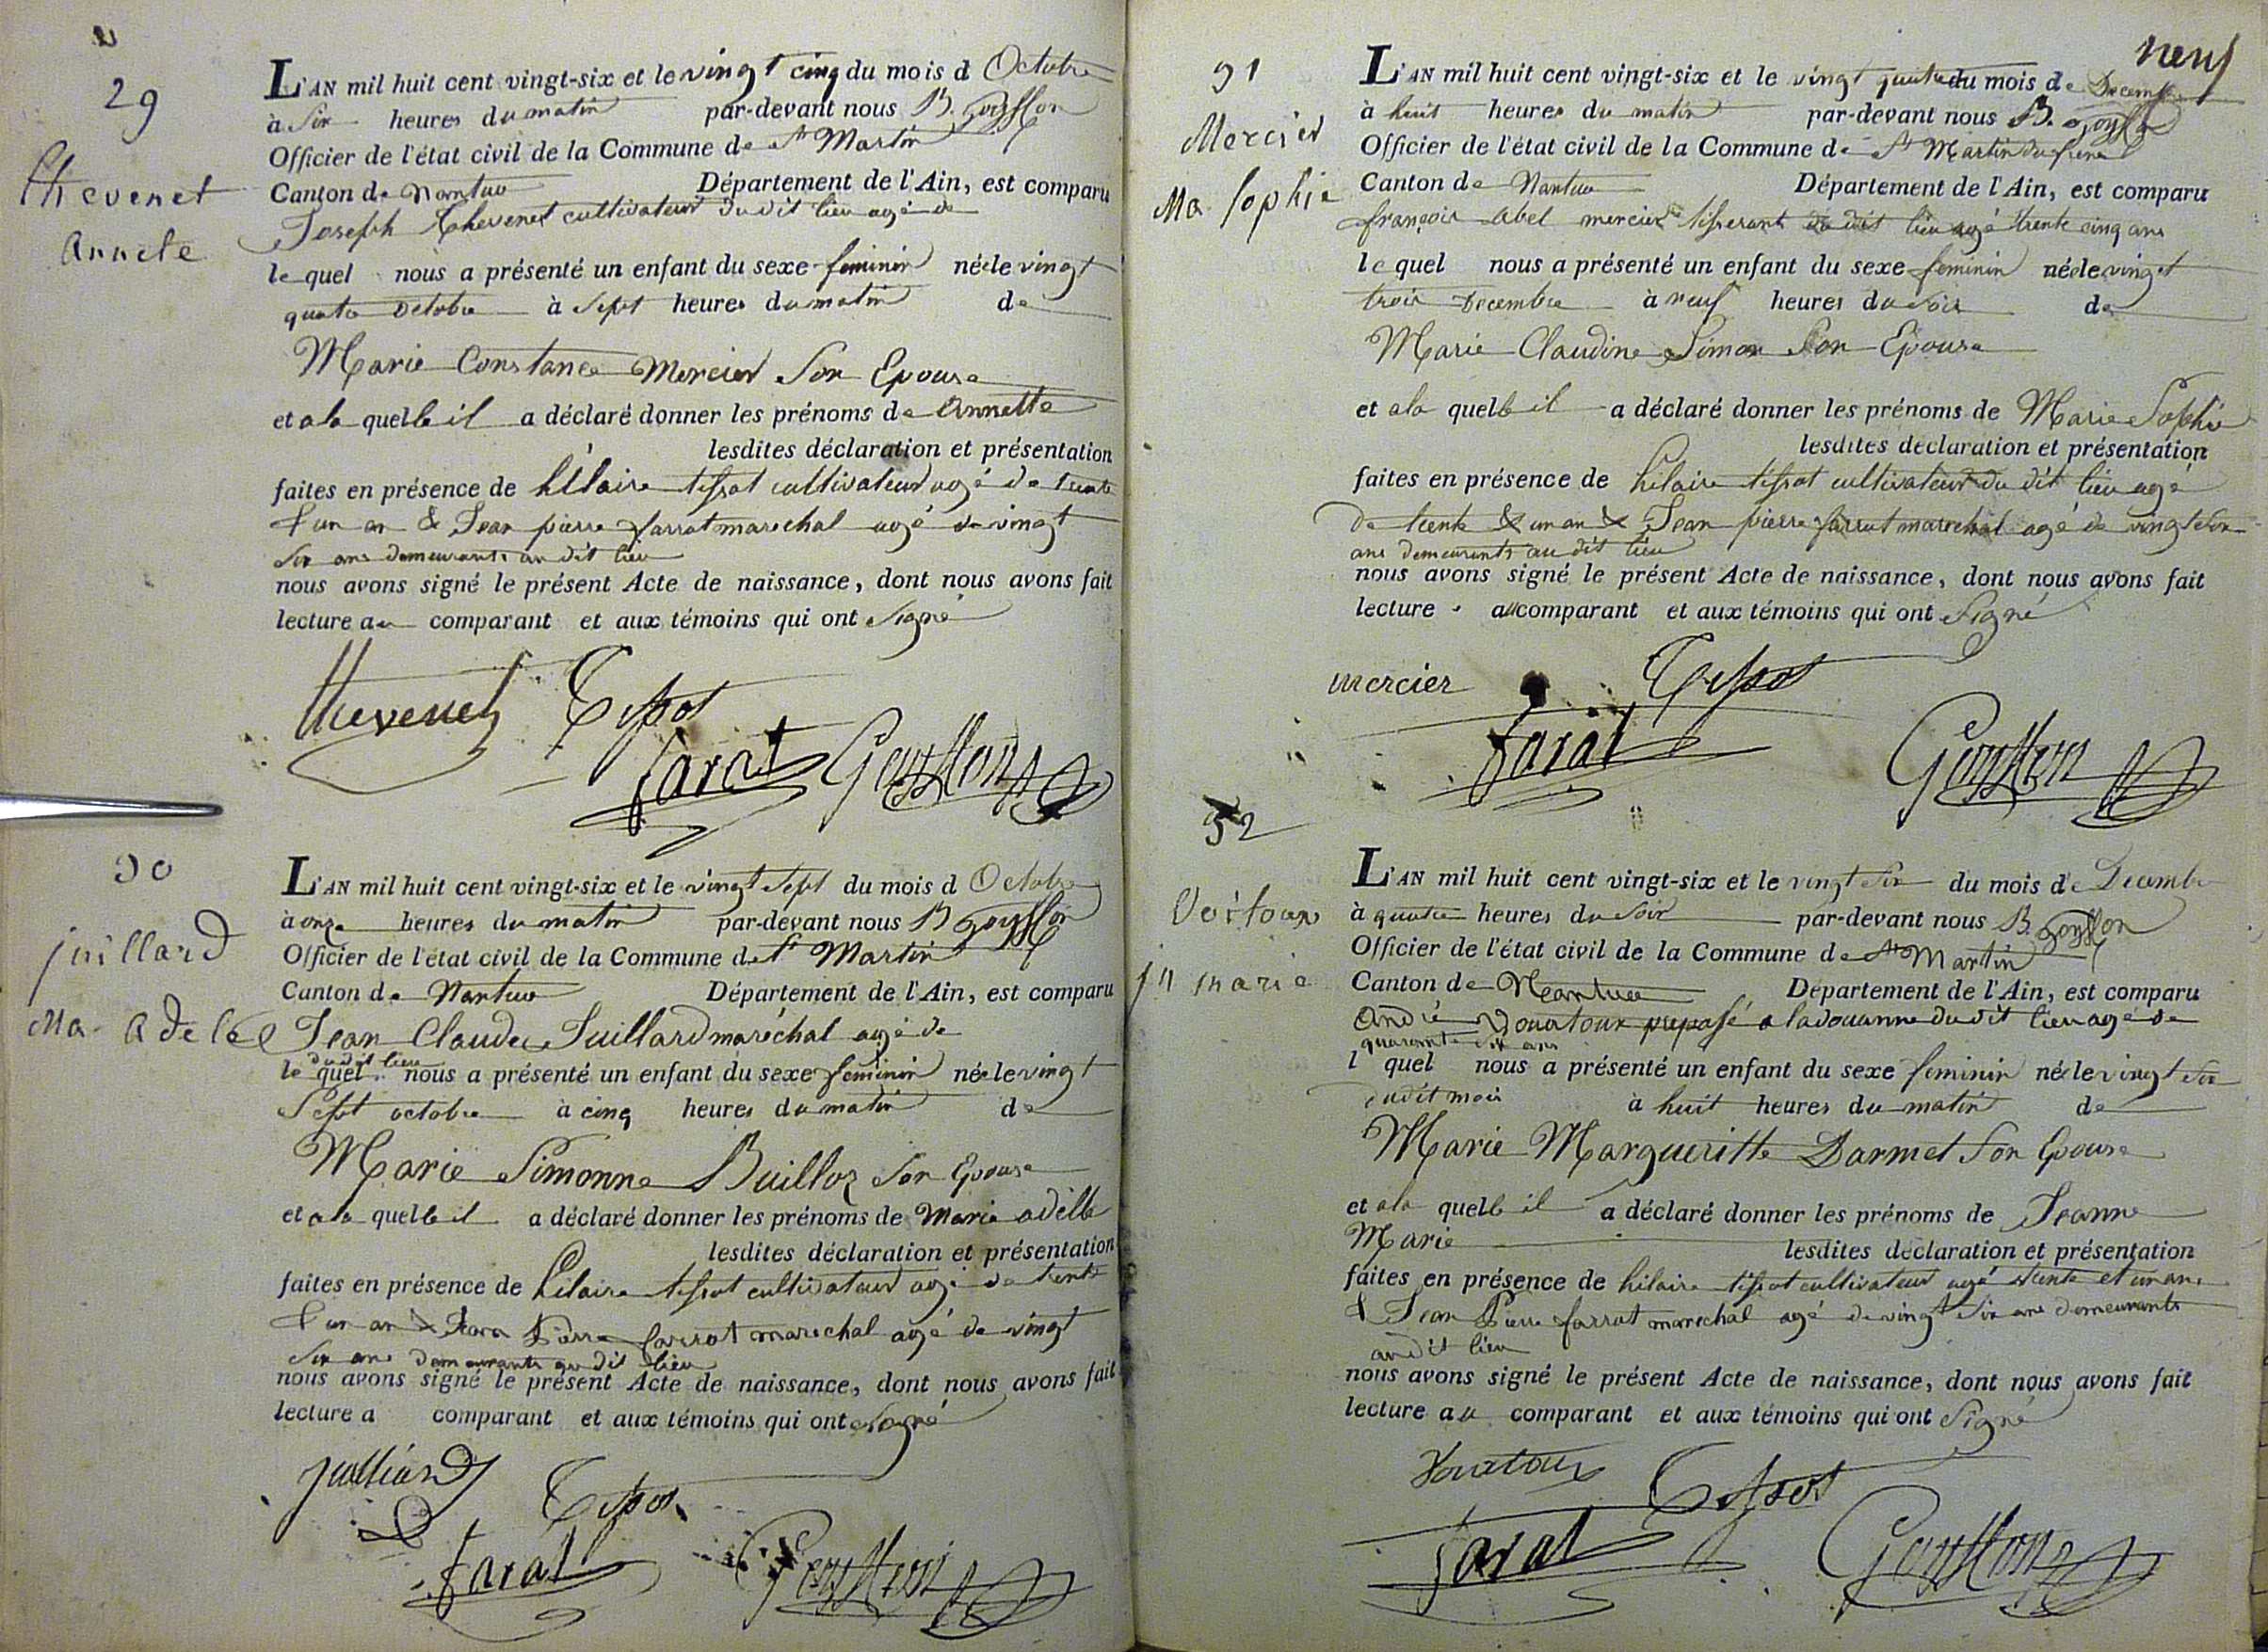 29
Thevenet
Annete
L'AN mil huit cent vingt-six et le vingt cinq du mois d Octobre
à Six heures du matin par-devant nous B. Goyffon
Officier de l'état civil de la Commune de St Martin
Canton de Nantua Département de l'Ain, est comparu
Joseph Thevenet cultivateur du dit lieu agé de
le quel nous a présenté un enfant du sexe feminin née le vingt
quatre Octobre à Sept heures du matin de
Marie Constance Mercier Son Epouse
et a la quelle il a déclaré donner les prénoms de Annette
lesdites déclaration et présentation
faites en présence de hilaire tissot cultivateur agé de trente
& un an & Jean pierre farrat marechal agé de vingt
Six ans demeurants au dit lieu
nous avons signé le présent Acte de naissance, dont nous avons fait
lecture au comparant et aux témoins qui ont Signé
Thevenet Tissot
farat Goyffon
30
juillard
Ma. Adele
L'AN mil huit cent vingt-six et le vingt Sept du mois d Octobre
à onze heures du matin par-devant nous B Goyffon
Officier de l'état civil de la Commune de St Martin
Canton de Nantua Département de l'Ain, est comparu
Jean Claude Juillard maréchal agé de
du dit lieu
le quel nous a présenté un enfant du sexe feminin née le vingt
Sept octobre à cinq heures du matin de
Marie Simonne Builloz Son Epouse
et a la quelle il a déclaré donner les prénoms de Marie adelle
lesdites déclaration et présentation
faites en présence de hilaire tissot cultivateur agé de trente
& un an & Jean Pierre farrat marechal agé de vingt
Six ans demeurants au dit lieu
nous avons signé le présent Acte de naissance, dont nous avons fait
lecture a comparant et aux témoins qui ont Signé
Tissot
farat Goyffon
neuf
31
Mercier
Ma. Sophie
L'AN mil huit cent vingt-six et le vingt quatre du mois de Decembre
à huit heures du matin par-devant nous B. Goyffon
Officier de l'état civil de la Commune de St Martin du frene
Canton de Nantua Département de l'Ain, est comparu
françois Abel mercier tisserant du dit lieu agé trente cinq ans
le quel nous a présenté un enfant du sexe feminin née le vingt
trois Decembre à neuf heures du Soir de
Marie Claudine Simon Son Epouse
et a la quelle il a déclaré donner les prénoms de Marie Sophie
lesdites déclaration et présentation
faites en présence de hilaire tissot cultivateur du dit lieu agé
de trente & un an & Jean pierre farrat marechal agé de vingt Six
ans demeurants au dit lieu
nous avons signé le présent Acte de naissance, dont nous avons fait
lecture au comparant et aux témoins qui ont Signé
mercier Tissot
farat Goyffon
32
jn marie
L'AN mil huit cent vingt-six et le vingt Six du mois de Decembre
à quatre heures du Soir par-devant nous B. Goyffon
Officier de l'état civil de la Commune de St Martin
Canton de Nantua Département de l'Ain, est comparu
André Vouatoux preposé a la douanne du dit lieu agé de
quarante six ans
l quel nous a présenté un enfant du sexe feminin née le vingt Six
dudit mois à huit heures du matin de
Marie Margueritte Darmet Son Epouse
et a la quelle il a déclaré donner les prénoms de Jeanne
Marie lesdites déclaration et présentation
faites en présence de hilaire tissot cultivateur agé trente et un an
& Jean Pierre farrat marechal agé de vingt Six ans demeurants
au dit lieu
nous avons signé le présent Acte de naissance, dont nous avons fait
lecture au comparant et aux témoins qui ont Signé
Vouatoux Tissot
farat Goyffon